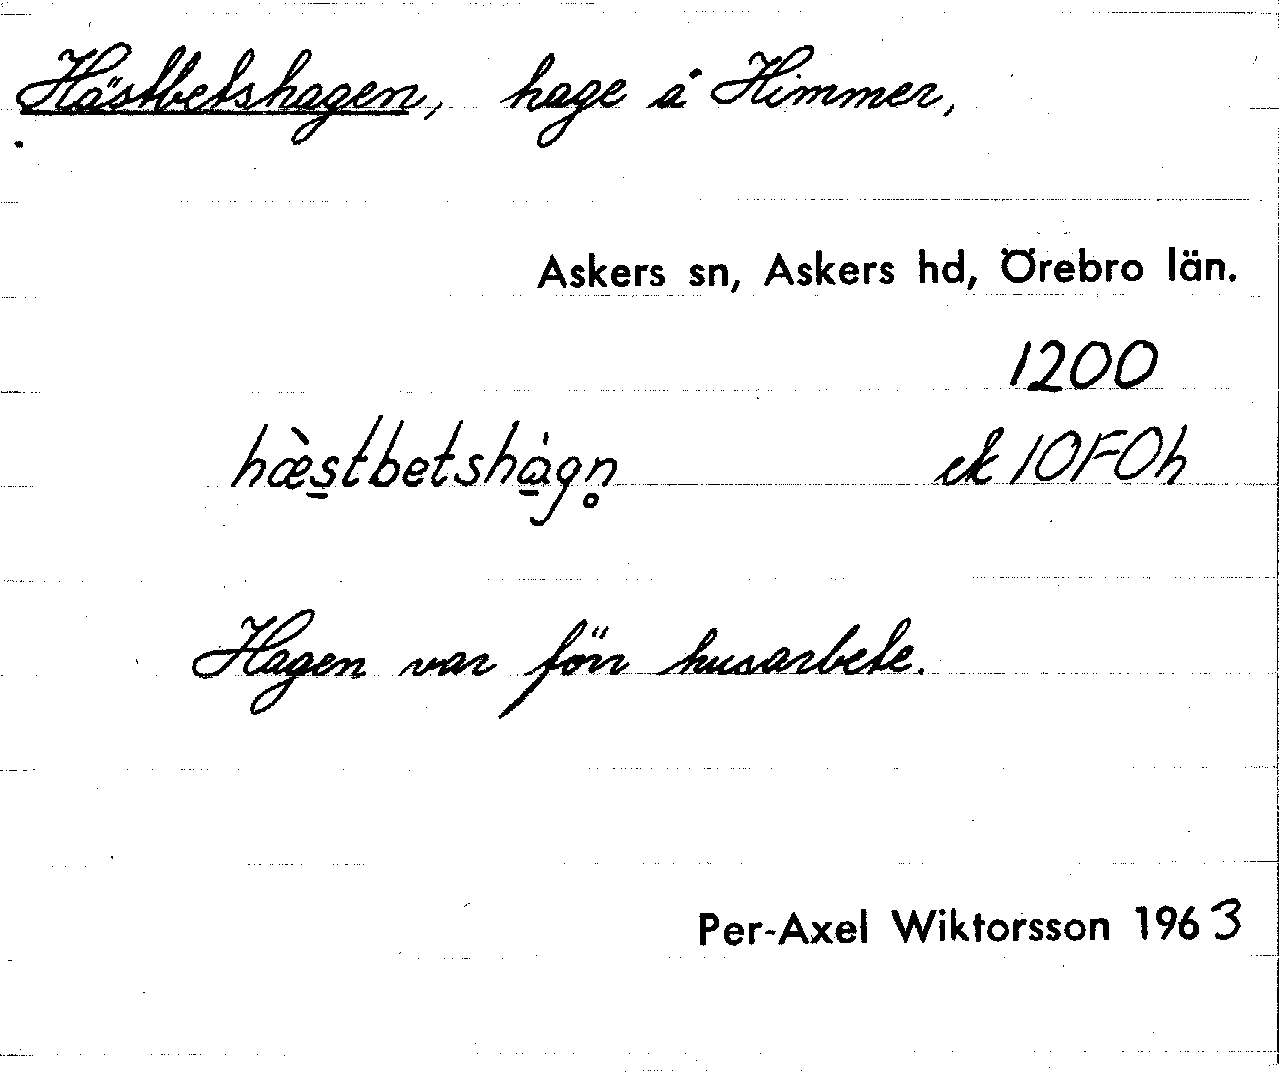 Hästbetshagen, hage å Himmer,
Askers sn, Askers hd, Örebro län.
1200
hæ̀s̠tbetshà̠gn̥ ek 10F0h
Hagen var förr husarbete.
Per-Axel Wiktorsson 1963